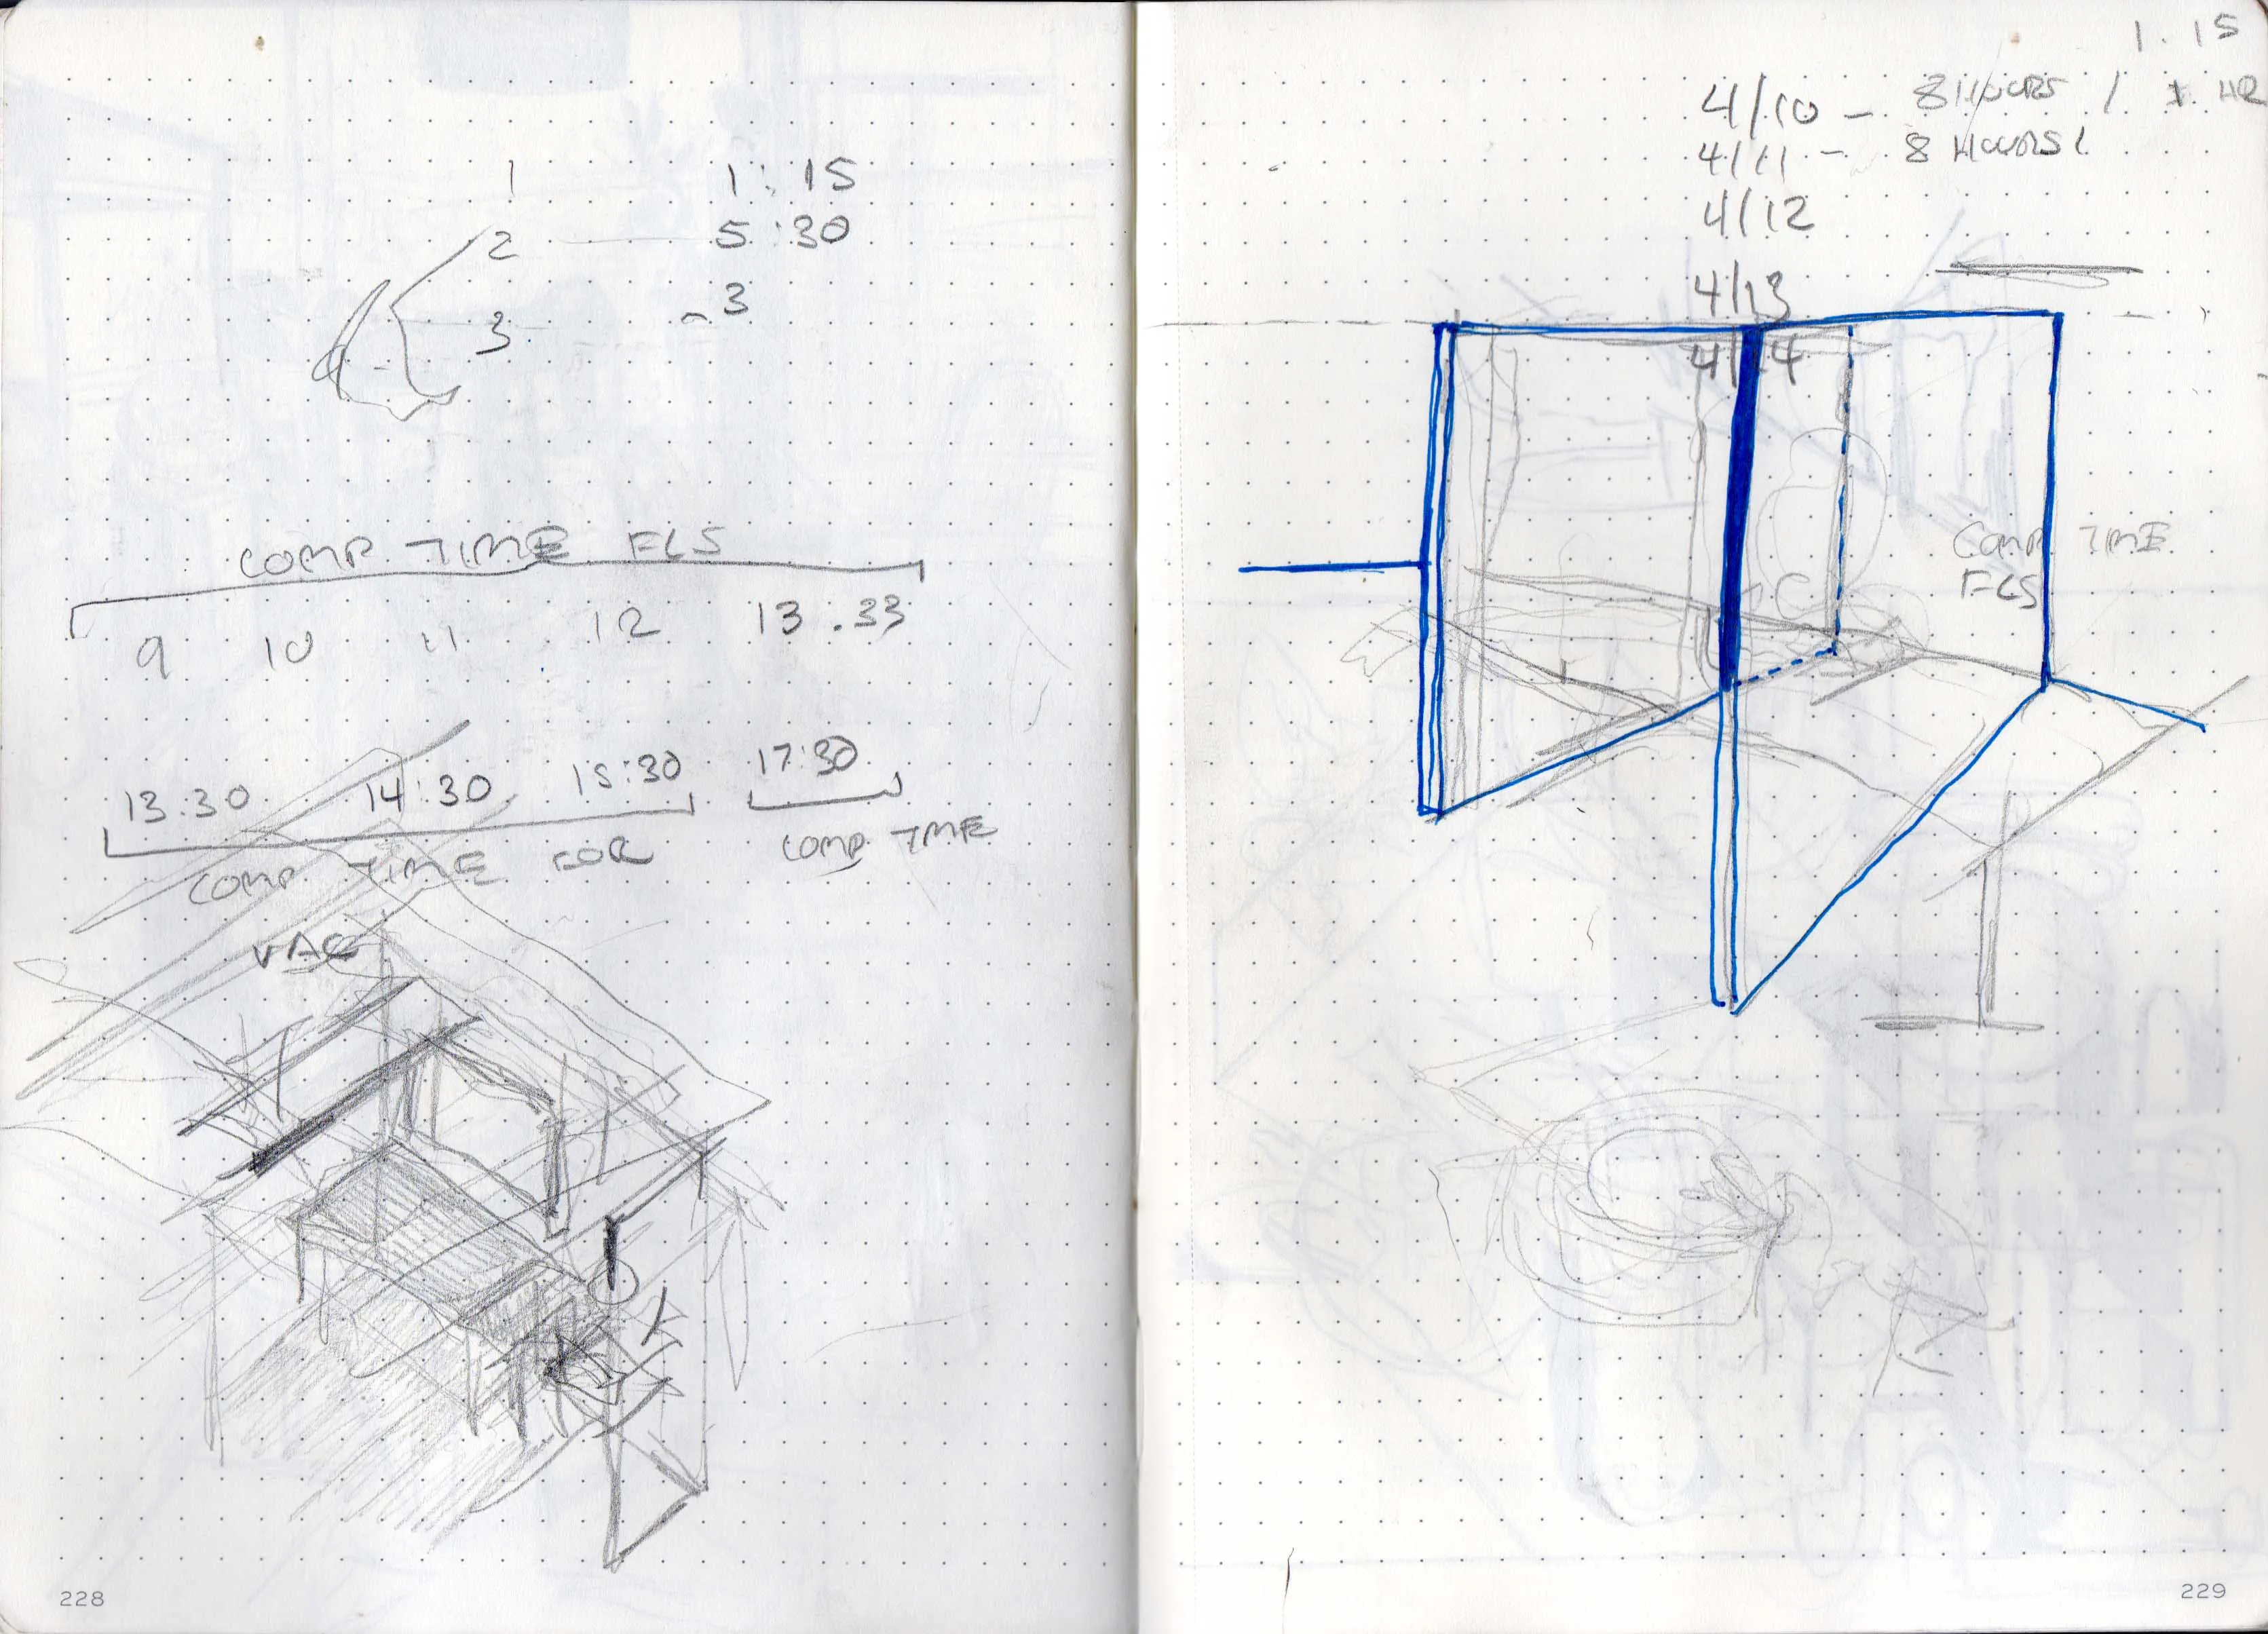 1 1:15
2 5:30
3 ~3
COMP TIME FLS
9 10 11 12 13.33
13:30 14:30 15:30 17:30
COMP TIME FOR COMP TIME
VAC
228
1.15
4/10 - 8 HOURS / 1 HR
4/11 - 8 HOURS
4/12
4/13
4/14
COMP TIME
FLS
229